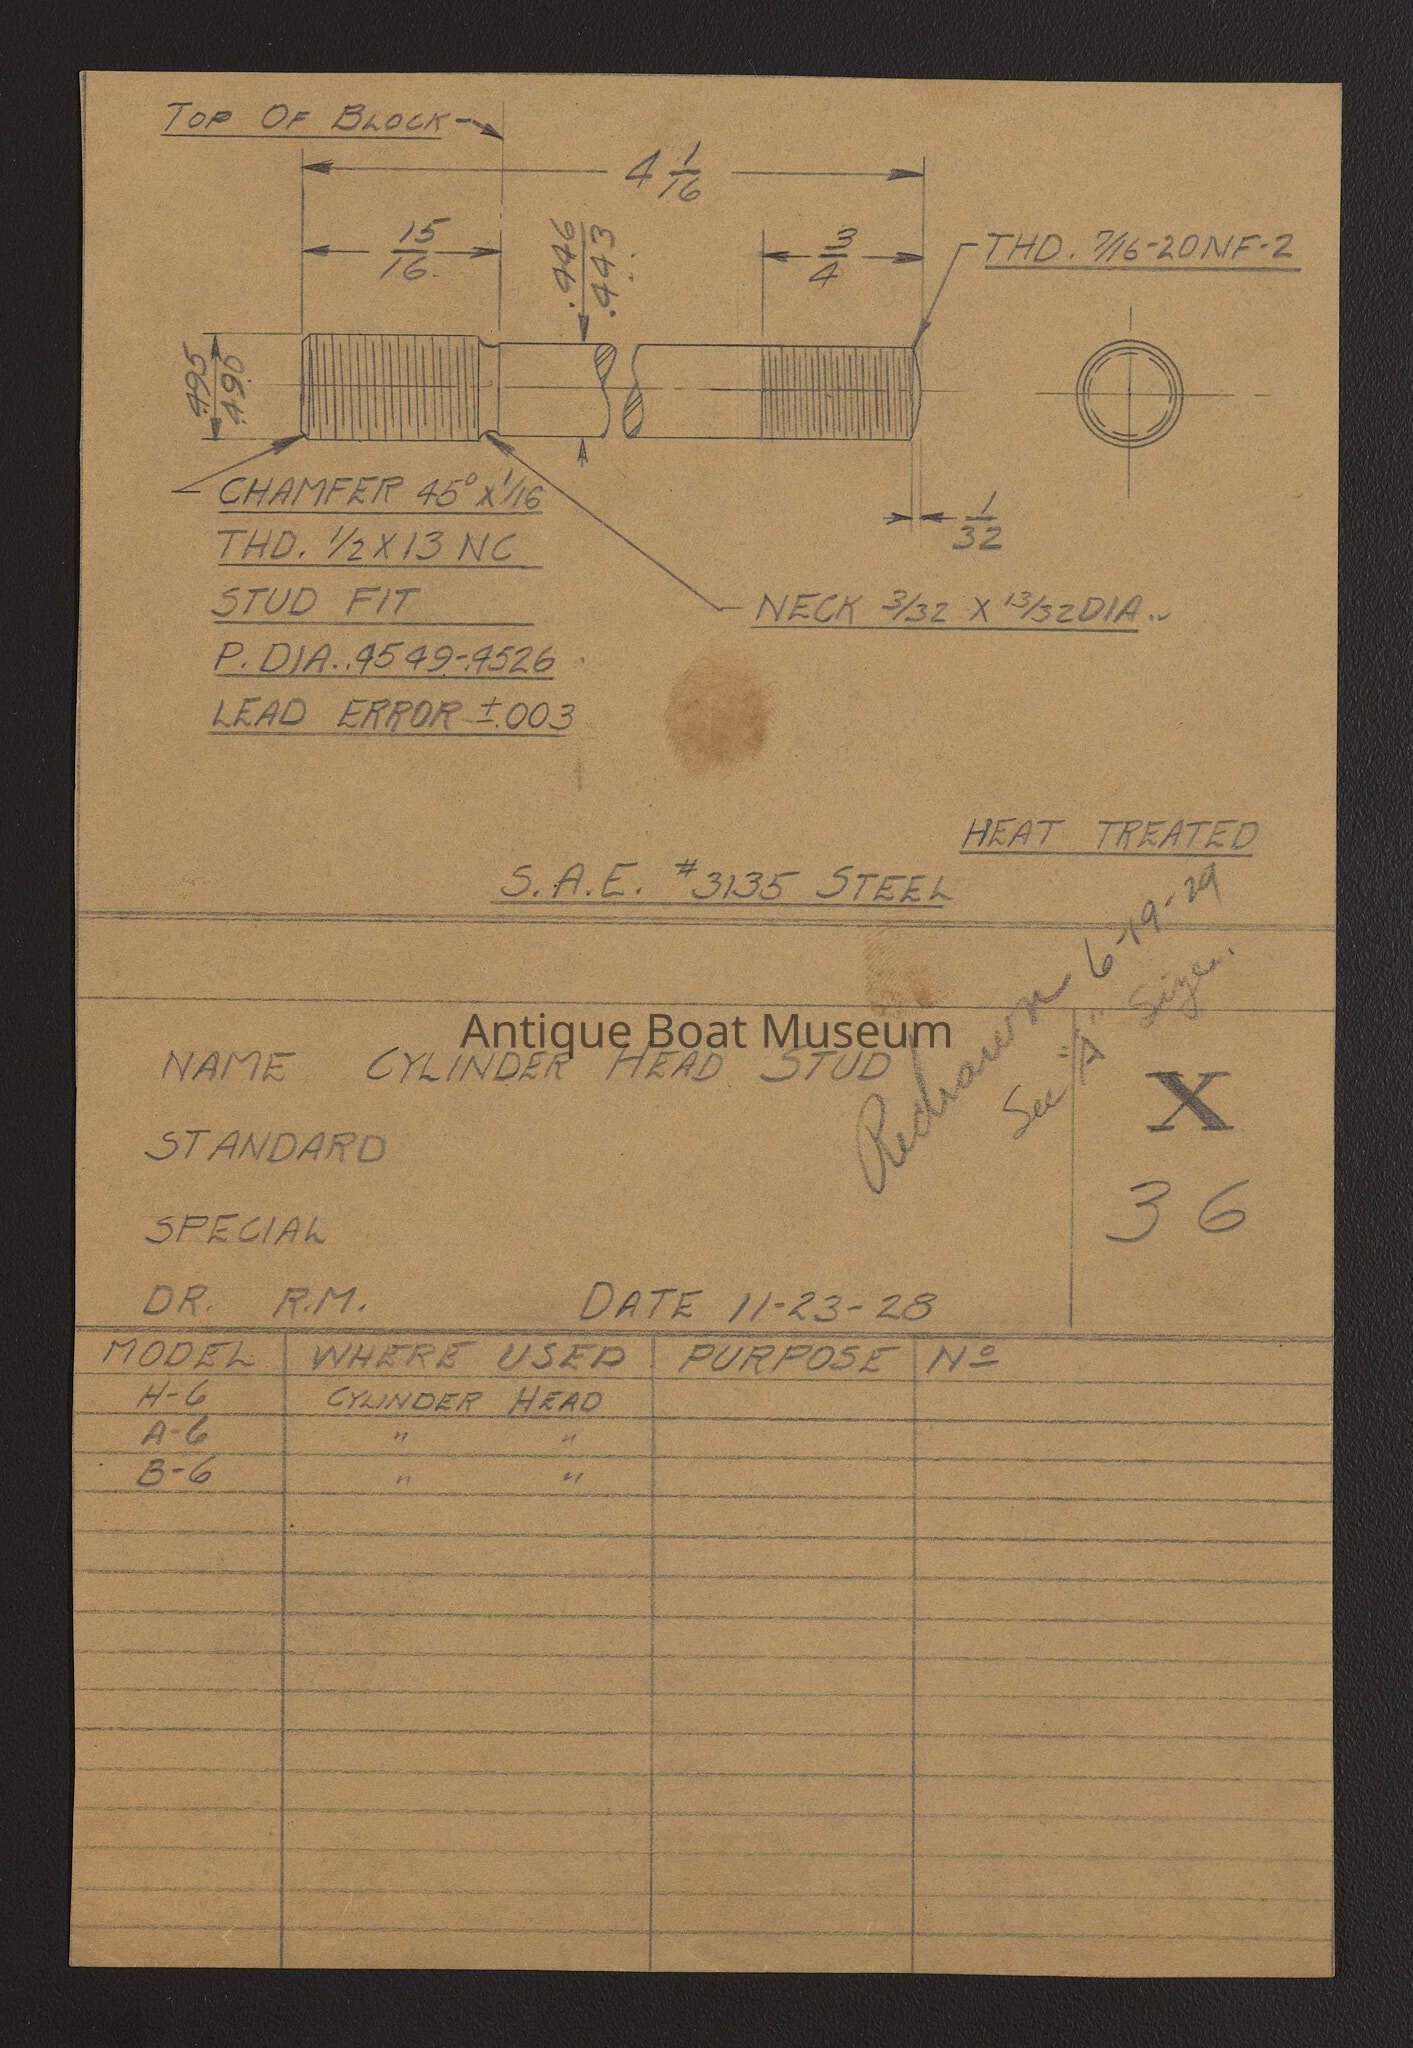 TOP OF BLOCK
4 1/16
15/16
.446
.443
3/4
THD. 7/16-20NF-2
.495
.490
CHAMFER 45° X 1/16
THD. 1/2 X 13 NC
STUD FIT
P. DIA. .4549-.4526
LEAD ERROR ±.003
1/32
NECK 3/32 X 13/32 DIA.
HEAT TREATED
S.A.E. #3135 STEEL
Redrawn 6-19-29
See "A" Size.
Antique Boat Museum
NAME CYLINDER HEAD STUD
X
STANDARD
36
SPECIAL
DR. R.M. DATE 11-23-28
MODEL WHERE USED PURPOSE Nº
H-6 CYLINDER HEAD
A-6 " "
B-6 " "